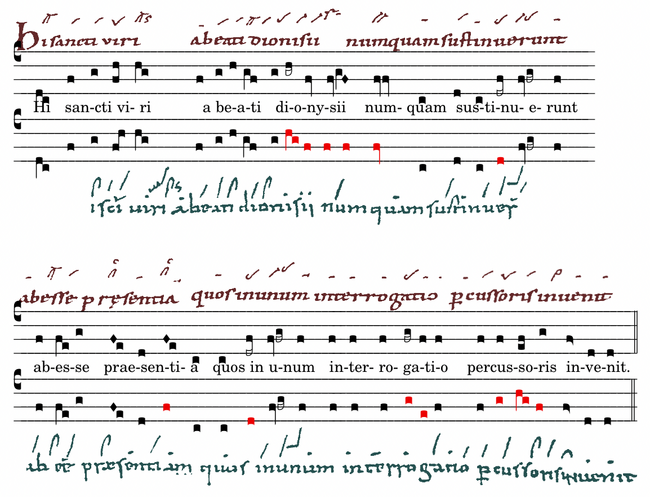 Hi sancti viri abeati dionisii numquam sustinuerunt
Hi san-cti vi- ri a be-a-ti di-o-ny-sii num- quam sus-ti-nu- e- runt
isci viri abeati dionisii numquam sustinuer
abesse presentia quos in unum interrogatio percussoris invenit.
ab-es-se prae-sen-ti- a quos in u-num in-ter- ro- ga-ti-o percus-so-ris in-ve-nit.
ab presentiam quos in unum interrogatio percussoris invenit